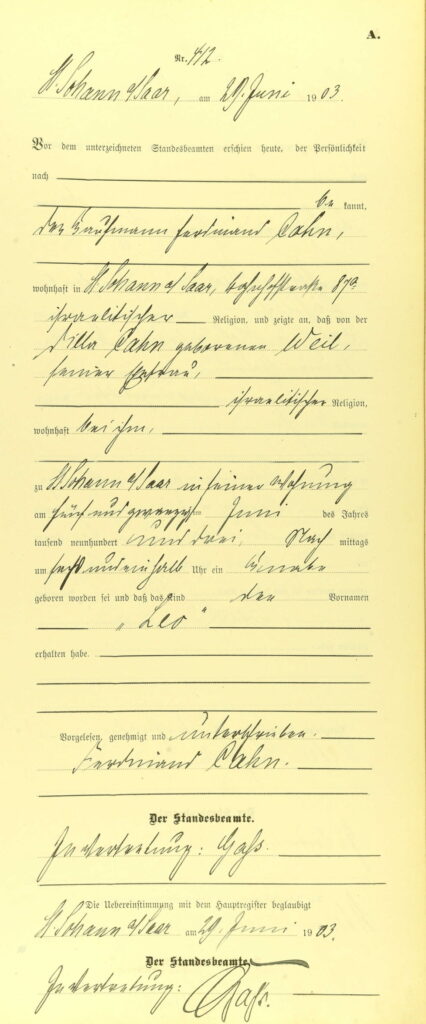 A.
Nr. 412.
St Johann a/Saar, am 29. Juni 1903.
Vor dem unterzeichneten Standesbeamten erschien heute, der Persönlichkeit
nach
be kannt,
der Kaufmann Ferdinand Cahn,
wohnhaft in St Johann a/Saar, Bahnhofstraße 87a
israelitischer Religion, und zeigte an, daß von der
Cahn geborenen Weil,
seiner Ehefrau,
israelitischer Religion,
wohnhaft bei ihm,
zu St Johann a/Saar in seiner Wohnung
am fünf und zwanzigsten Juni des Jahres
tausend neunhundert und drei, Nach mittags
um und einhalb Uhr ein Knabe
geboren worden sei und daß das Kind den Vornamen
„Leo“
erhalten habe.
Vorgelesen, genehmigt und unterschrieben.
Ferdinand Cahn.
Der Standesbeamte.
In Vertretung: Gaß.
Die Uebereinstimmung mit dem Hauptregister beglaubigt
St Johann a/Saar am 29. Juni 1903.
Der Standesbeamte.
In Vertretung: Gaß.